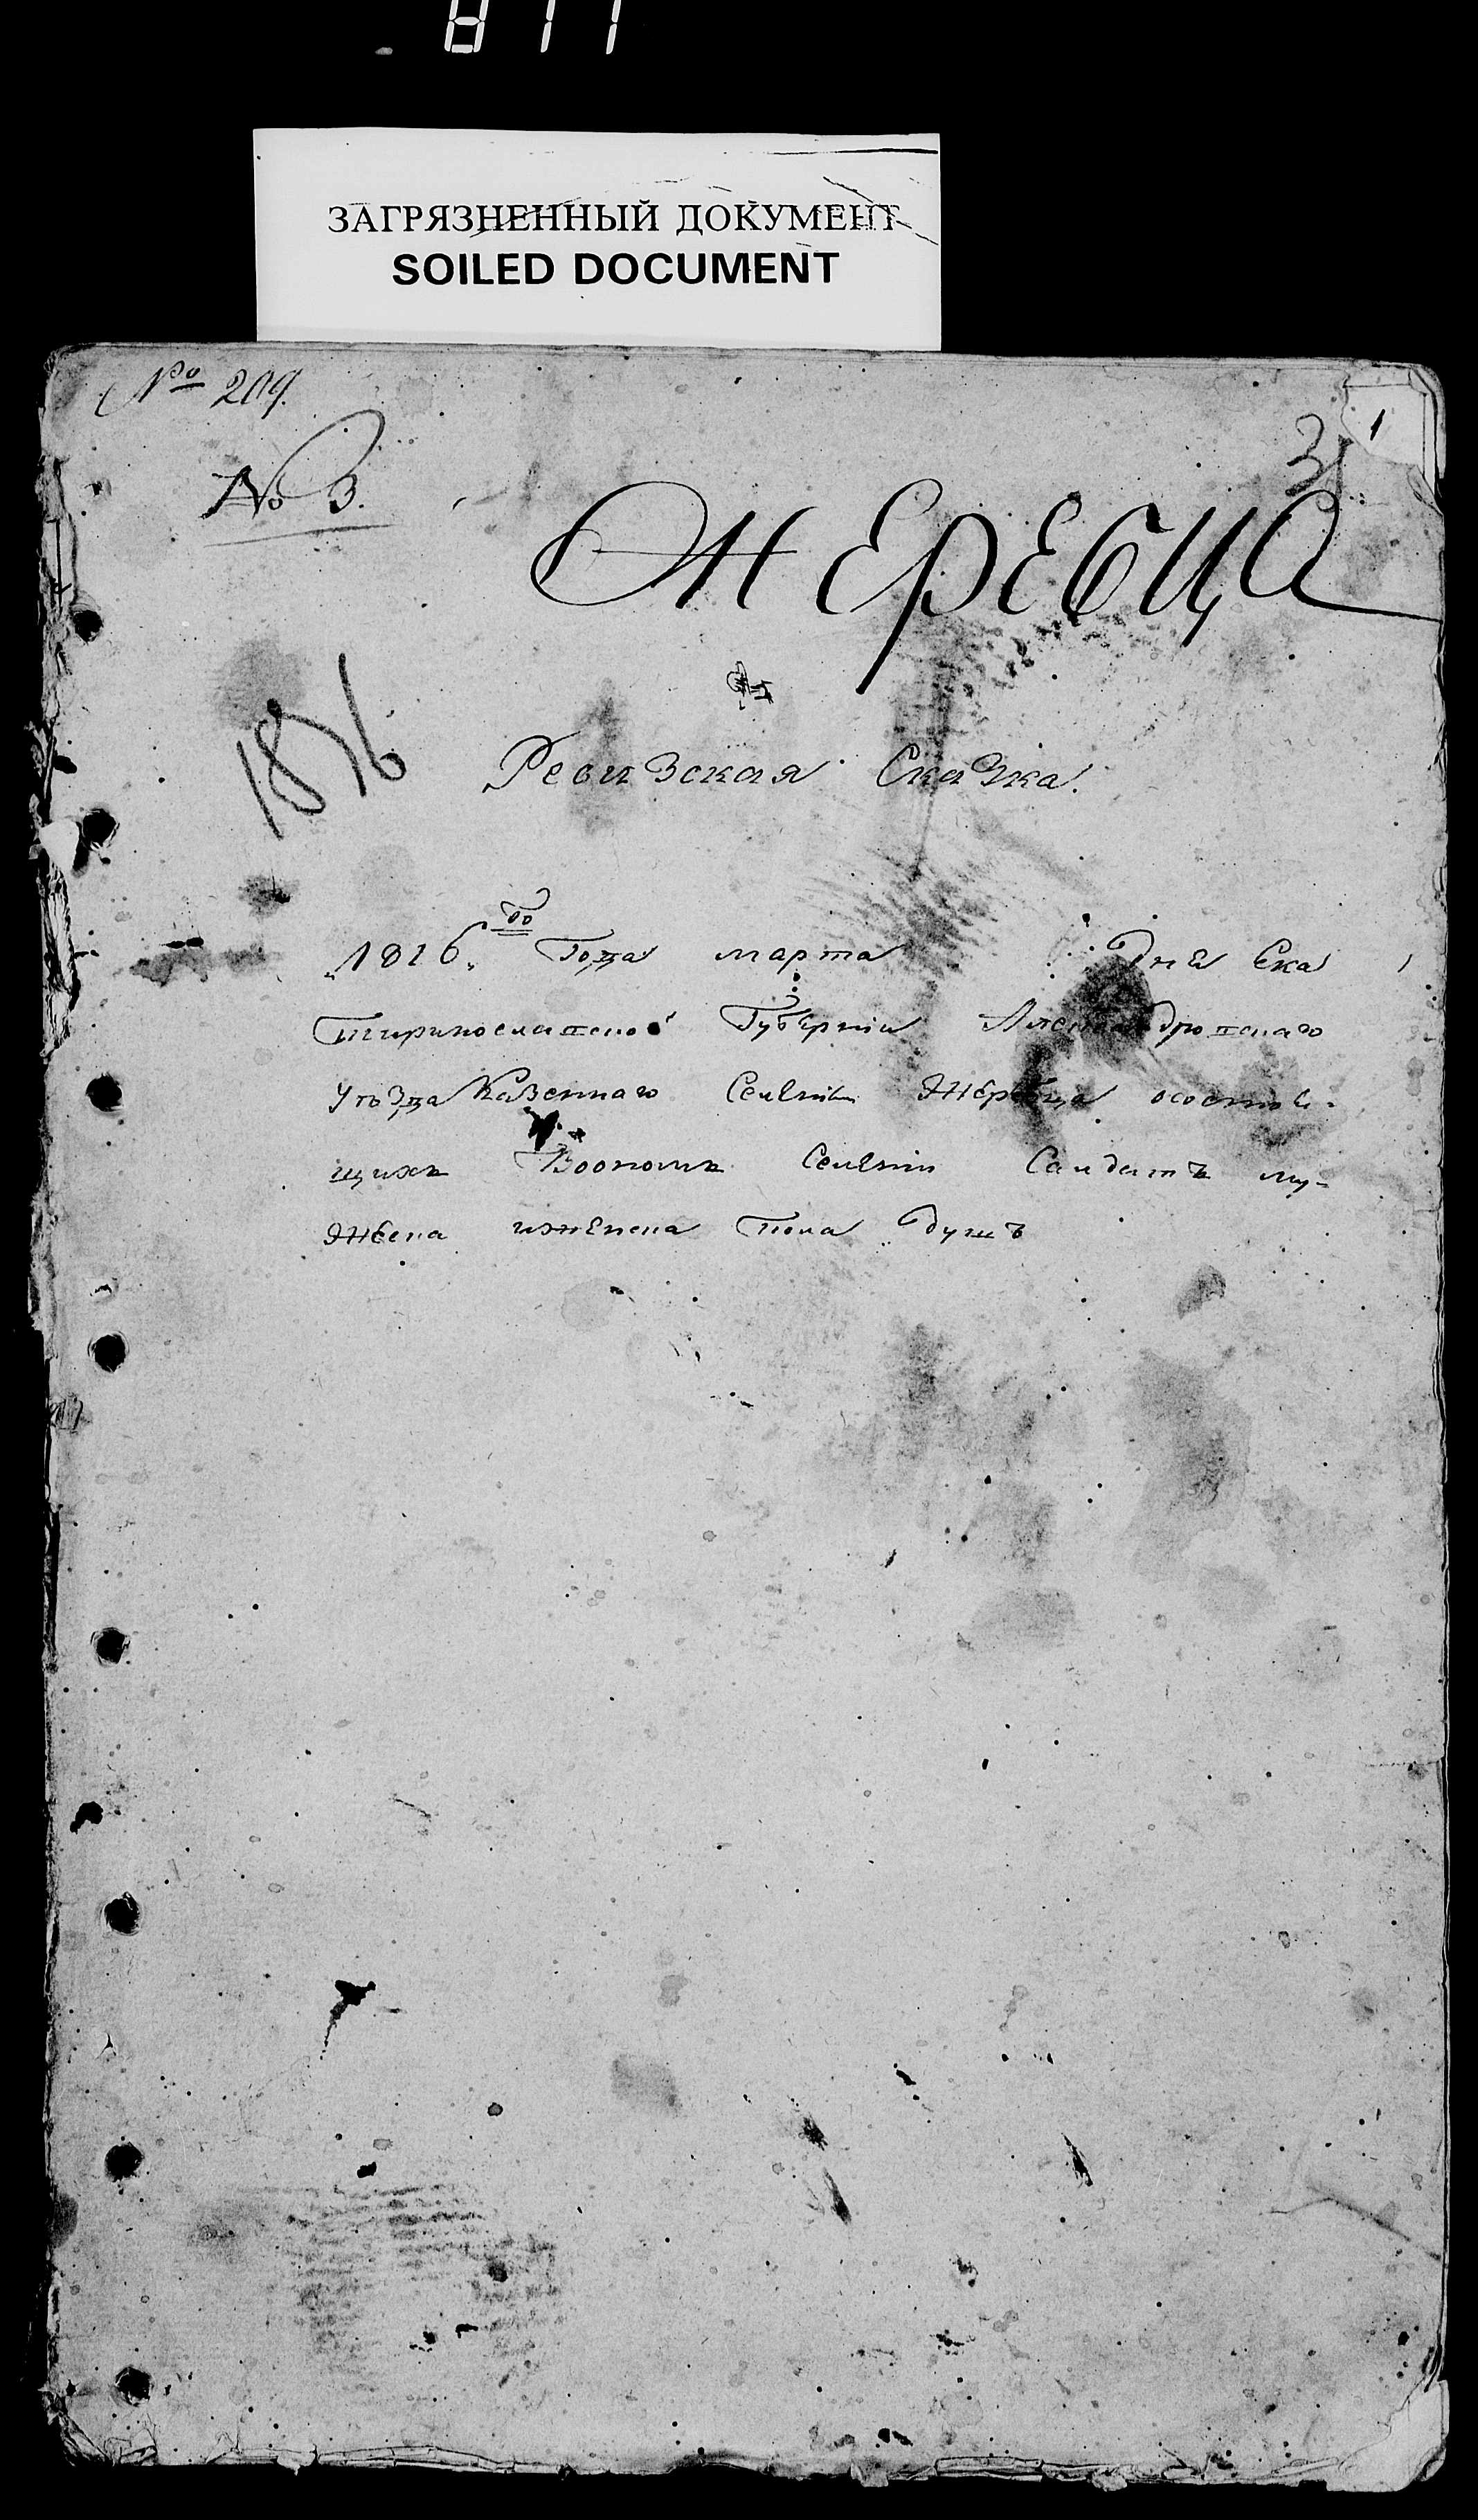 811
ЗАГРЯЗНЕННЫЙ ДОКУМЕНТ
SOILED DOCUMENT
№ 209.
1
31
№ 3.
Жеребца
1816
Ревизская Сказка.
„1816„ го Года марта дня Ека
тиринославской Губернiи Александровскаго
уѣзда Казеннаго Селенiя Жеребца осостоя-
щихъ Воономъ Селенiи Салдатъ му-
жеска иженска пола душъ